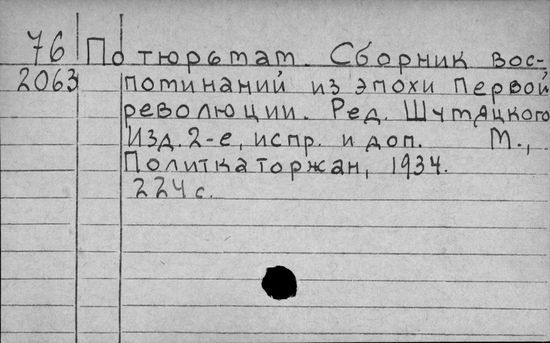 76 По тюрьмам. Сборник вос-
2063 поминаний из эпохи первой
революции. Ред. Шумяцкого
Изд. 2-е, испр. и доп. М.,
Политкаторжан, 1934.
224 с.